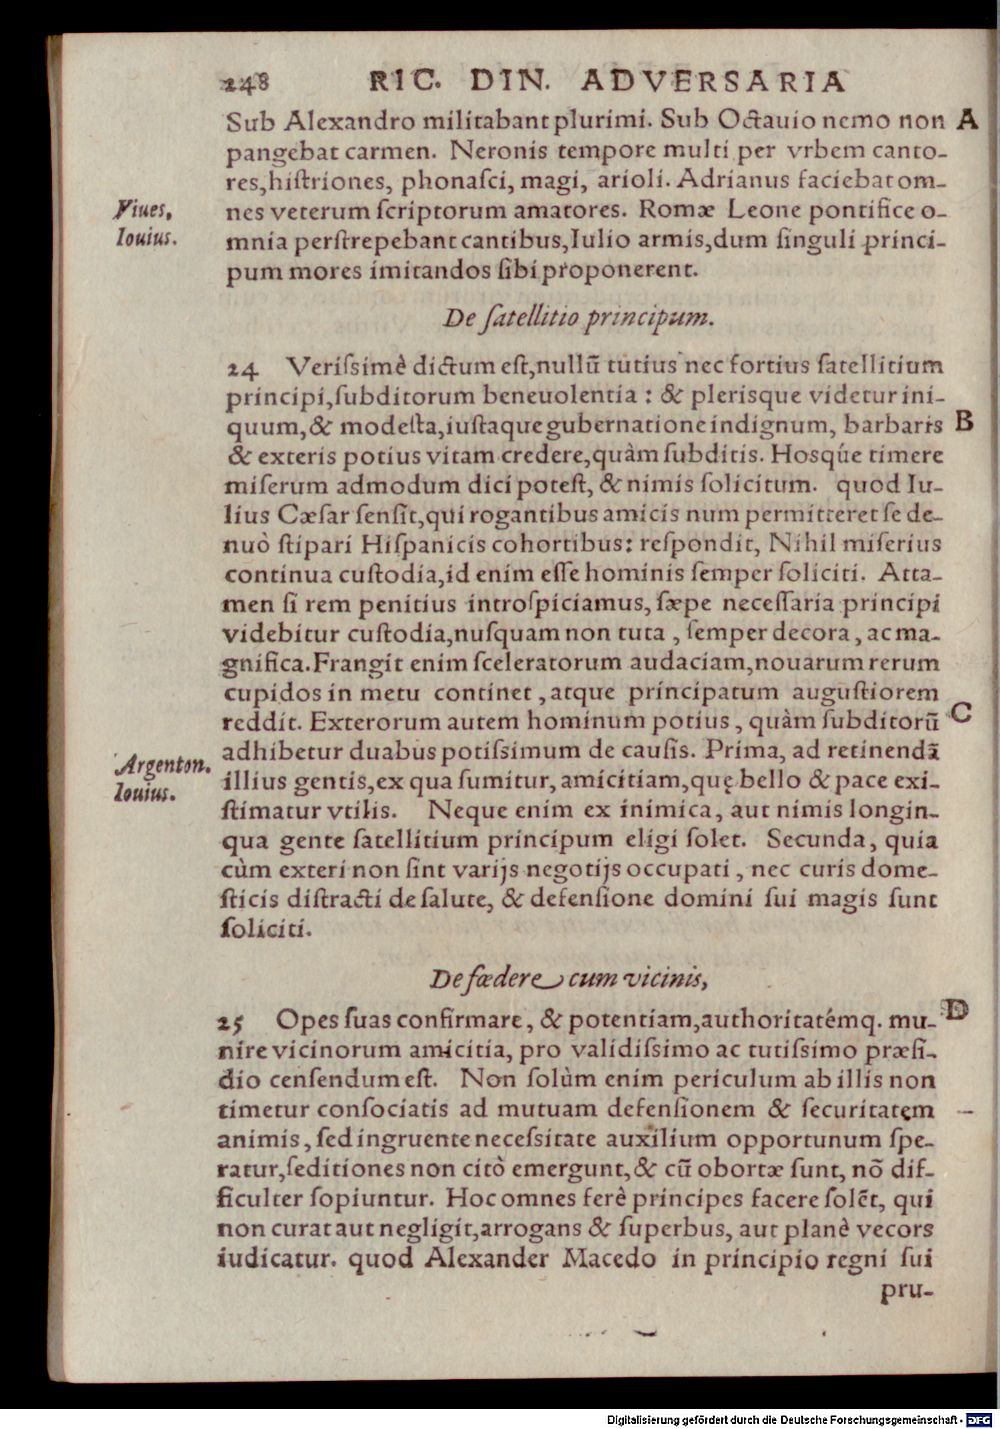 248 RIC. DIN. ADVERSARIA
Sub Alexandro militabant plurimi. Sub Octauio nemo non A
pangebat carmen. Neronis tempore multi per vrbem canto-
res, hiſtriones, phonaſci, magi, arioli. Adrianus faciebat om-
Viues. nes veterum ſcriptorum amatores. Romæ Leone pontifice o-
Iouius. mnia perſtrepebant cantibus, Iulio armis, dum ſinguli princi-
pum mores imitandos ſibi proponerent.
De ſatellitio principum.
24 Veriſsimè dictum eſt, nullũ tutius nec fortius ſatellitium
principi, ſubditorum beneuolentia : & plerisque videtur ini-
quum, & modeſta, iuſtaque gubernatione indignum, barbaris B
& exteris potius vitam credere, quàm ſubditis. Hosq́ue timere
miſerum admodum dici poteſt, & nimis ſolicitum. quod Iu-
lius Cæſar ſenſit, qui rogantibus amicis num permitteret ſe de-
nuò ſtipari Hiſpanicis cohortibus: reſpondit, Nihil miſerius
continua cuſtodia, id enim eſſe hominis ſemper ſoliciti. Atta-
men ſi rem penitius introſpiciamus, ſæpe neceſſaria principi
videbitur cuſtodia, nuſquam non tuta, ſemper decora, ac ma-
gnifica. Frangit enim ſceleratorum audaciam, nouarum rerum
cupidos in metu continet, atque principatum auguſtiorem
reddit. Exterorum autem hominum potius, quàm ſubditorũ C
Argenton. adhibetur duabus potiſsimum de cauſis. Prima, ad retinendã
Iouius. illius gentis, ex qua ſumitur, amicitiam, quę bello & pace exi-
ſtimatur vtilis. Neque enim ex inimica, aut nimis longin-
qua gente ſatellitium principum eligi ſolet. Secunda, quia
cùm exteri non ſint varijs negotijs occupati, nec curis dome-
ſticis diſtracti de ſalute, & defenſione domini ſui magis ſunt
ſoliciti.
De fœdere cum vicinis,
25 Opes ſuas confirmare, & potentiam, authoritatémq. mu- D
nire vicinorum amicitia, pro validiſsimo ac tutiſsimo præſi-
dio cenſendum eſt. Non ſolùm enim periculum ab illis non
timetur conſociatis ad mutuam defenſionem & ſecuritatem
animis, ſed ingruente neceſsitate auxilium opportunum ſpe-
ratur, ſeditiones non citò emergunt, & cũ obortæ ſunt, nõ dif-
ficulter ſopiuntur. Hoc omnes ferè principes facere ſolẽt, qui
non curat aut negligit, arrogans & ſuperbus, aut planè vecors
iudicatur. quod Alexander Macedo in principio regni ſui
pru-
Digitalisierung gefördert durch die Deutsche Forschungsgemeinschaft - DFG